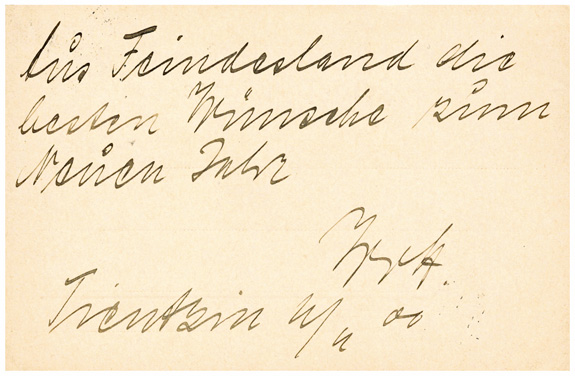 Aus Feindesland die
besten Wünsche zum
Neuen Jahr
Tientsin 4/11 00